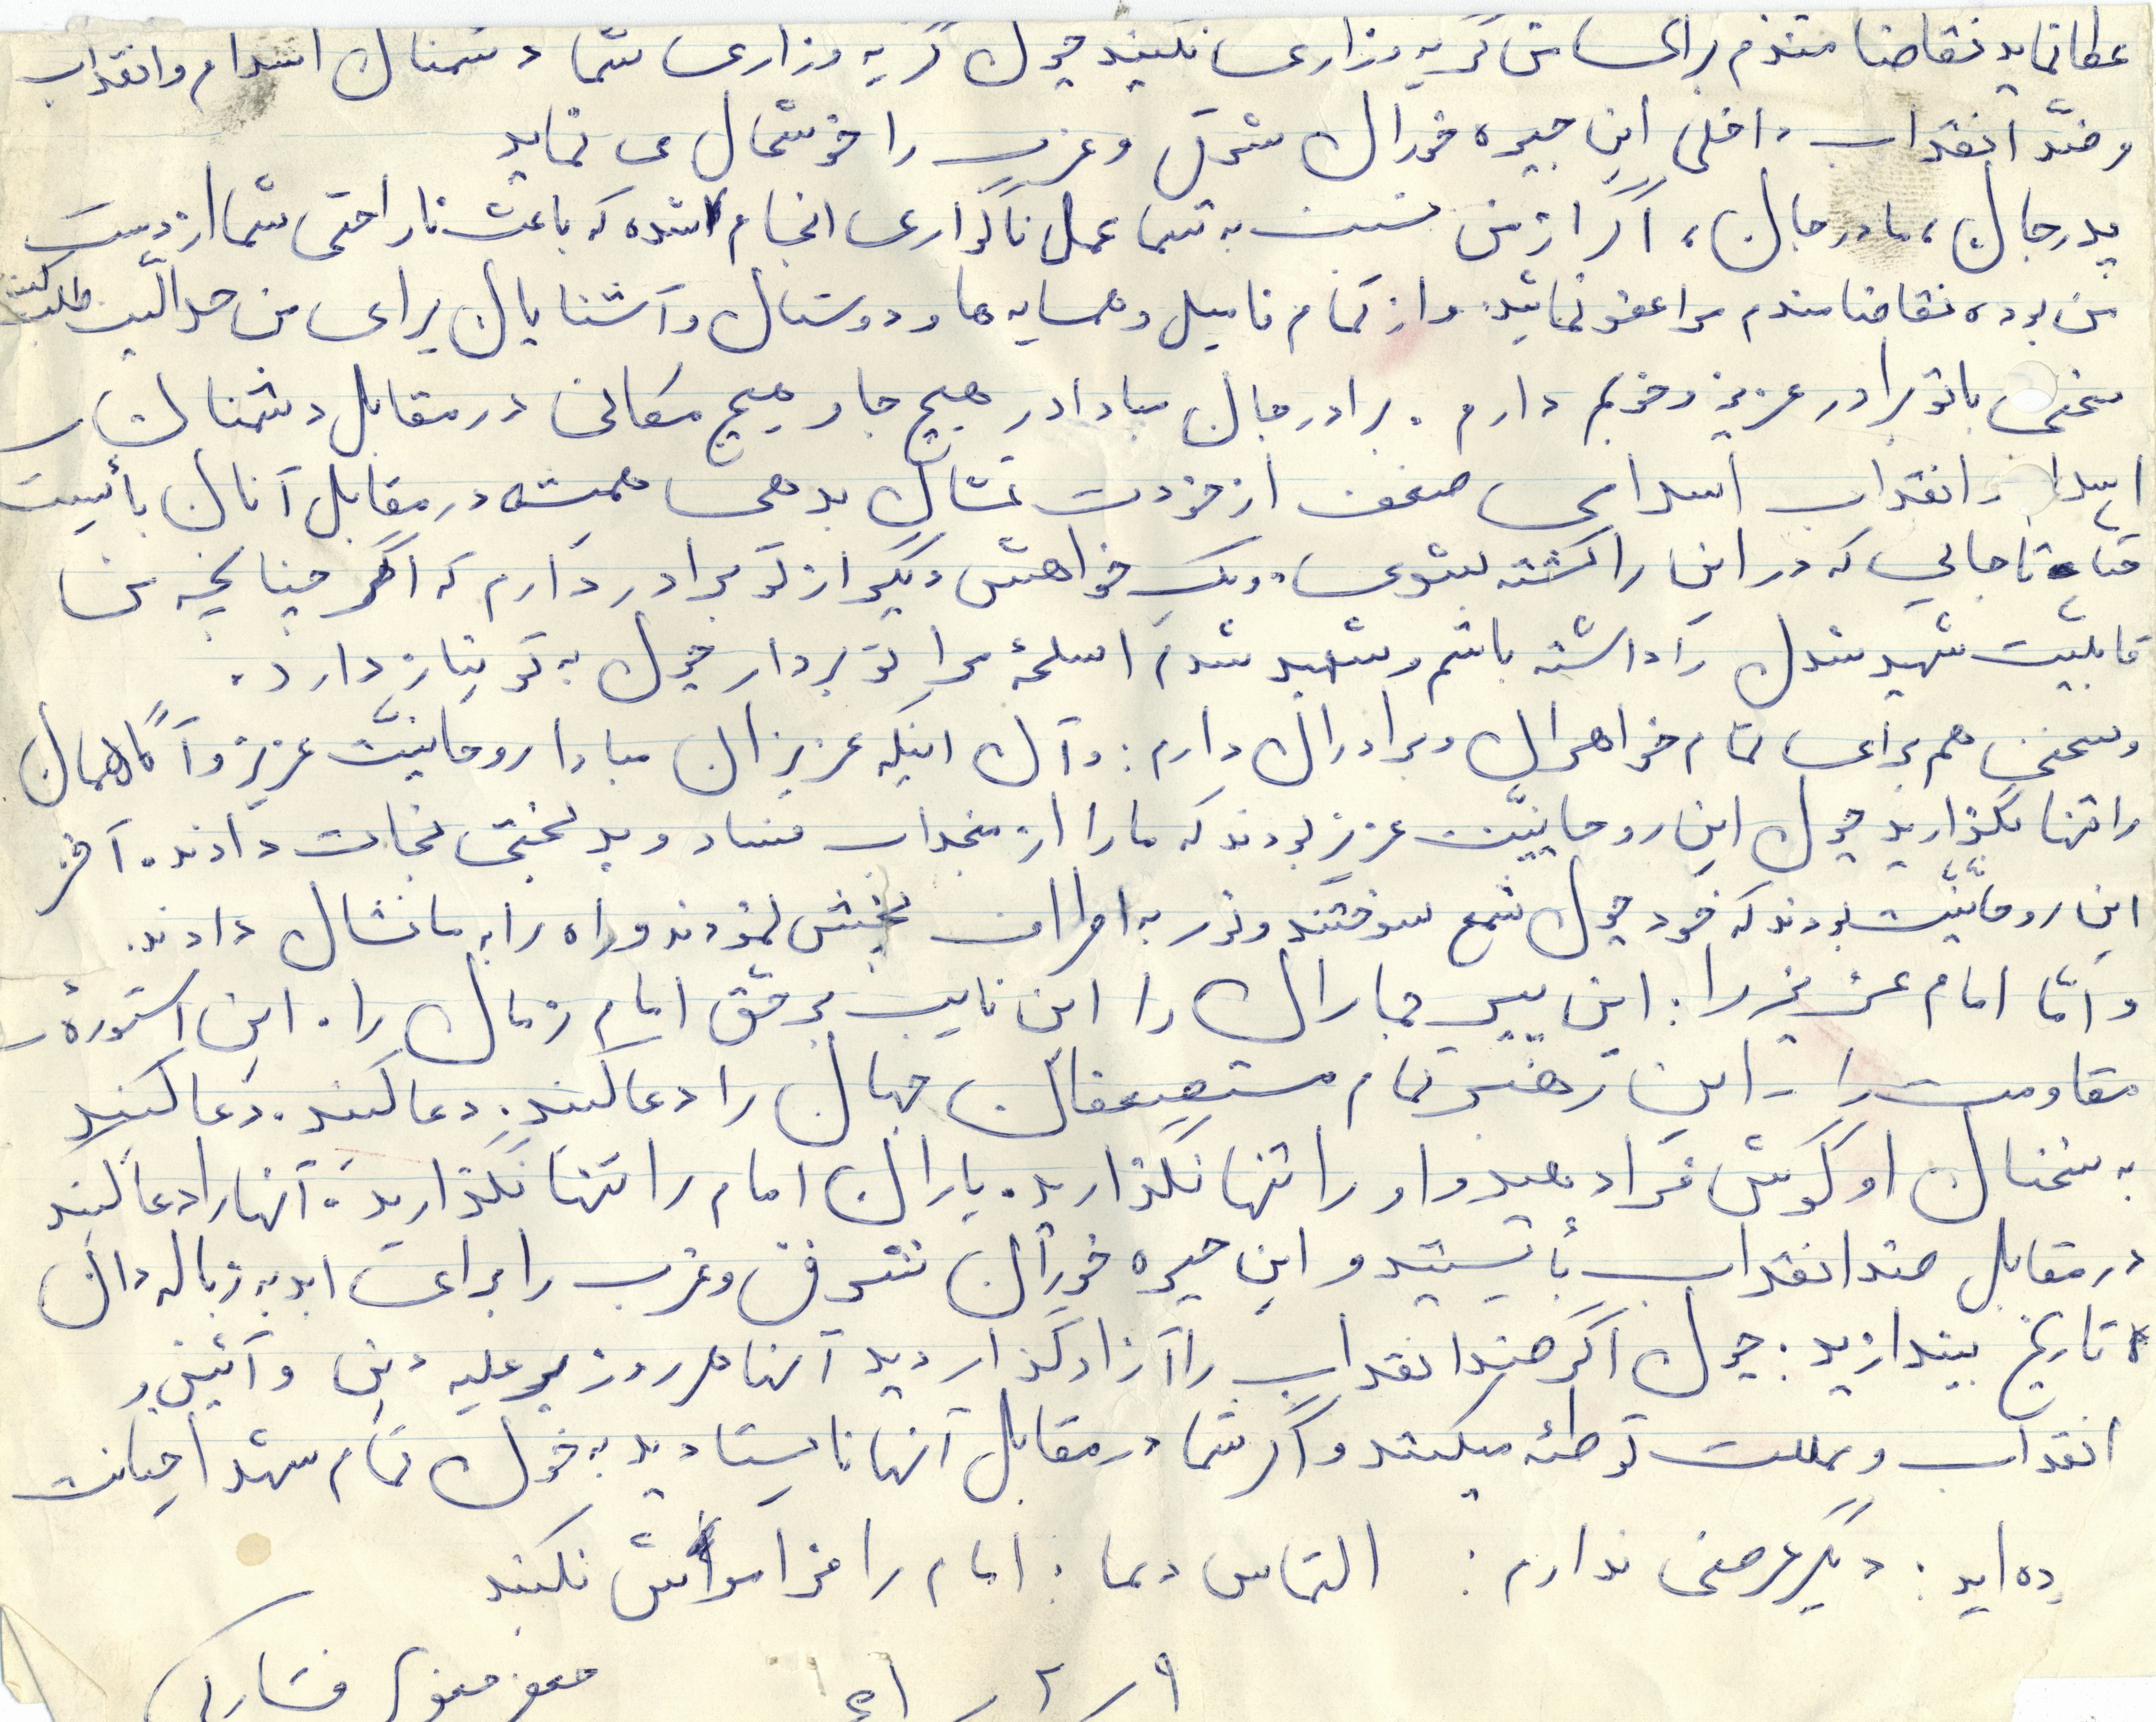 عطا نماید تقاضامندم برای من گریه وزاری نکنید چون گریه وزاری شما دشمنان اسلام وانقلاب
وضدّ انقلاب داخلی این جیره خوران شرق وغرب را خوشحال می نماید
پدرجان، مادرجان، اگر از من نسبت به شما عمل ناگواری انجام شده که باعث ناراحتی شما از دست
من بوده تقاضامندم مرا عفو نمائید. واز تمام فامیل وهمسایه ها ودوستان وآشنایان برای من حلالیّت طلب کنید
سخنی باتو برادر عزیز وخوبم دارم. برادرجان مبادا در هیچ جا و هیچ مکانی در مقابل دشمنان
اسلام وانقلاب اسلامی ضعف از خودت نشان بدهی همیشه در مقابل آنان بأیست
حتی تاجایی که در این راه کشته بشوی. ویک خواهش دیگر از تو برادر دارم که اگر چنانچه من
قابلیّت شهید شدن را داشته باشم وشهید شدم اسلحهٔ مرا تو بردار چون به تو نیاز دارد.
وسخنی هم برای تمام خواهران وبرادران دارم: وآن اینکه عزیزان مبادا روحانیّت عزیز وآگاهمان
را تنها بگذارید چون این روحانیّت عزیز بودند که ما را از منجلاب فساد و بدبختی نجات دادند. آخر
این روحانیّت بودند که خود چون شمع سوختند ونور به اطراف بخش نمودند وراه را به ما نشان دادند.
و امّا امام عزیز را: این پیر جماران را این نایب برحق امام زمان را. این اسنوره
مقاومت را - این رهبر تمام مستضعفان جهان را دعا کنید. دعا کنید. دعا کنید
به سخنان او گوش فراد هید و او را تنها نگذارید. یاران امام را تنها نگذارید. آنها را دعا کنید
در مقابل ضدانقلاب بأیستید و این جیره خوران شرق وغرب را برای ابد به زباله دان
تاریخ بیندازید. چون اگر ضدانقلاب را آزاد گذاردید آنها هر روز بر علیه دین وآئین و
انقلاب و مملکت توطئه میکنند و اگر شما در مقابل آنها نایستادید به خون تمام شهدا خیانت
ده اید: دیگر عرضی ندارم: التماس دعا: امام را فراموش نکنید
۹ ر ۲ ر ۶۱